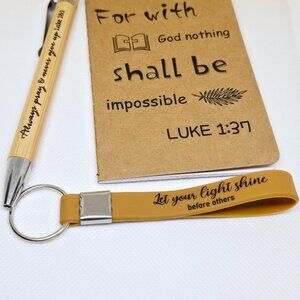 Always pray & never give up Luke 18:1
For with
God nothing
shall be
impossible
LUKE 1:37
Let your light shine
before others